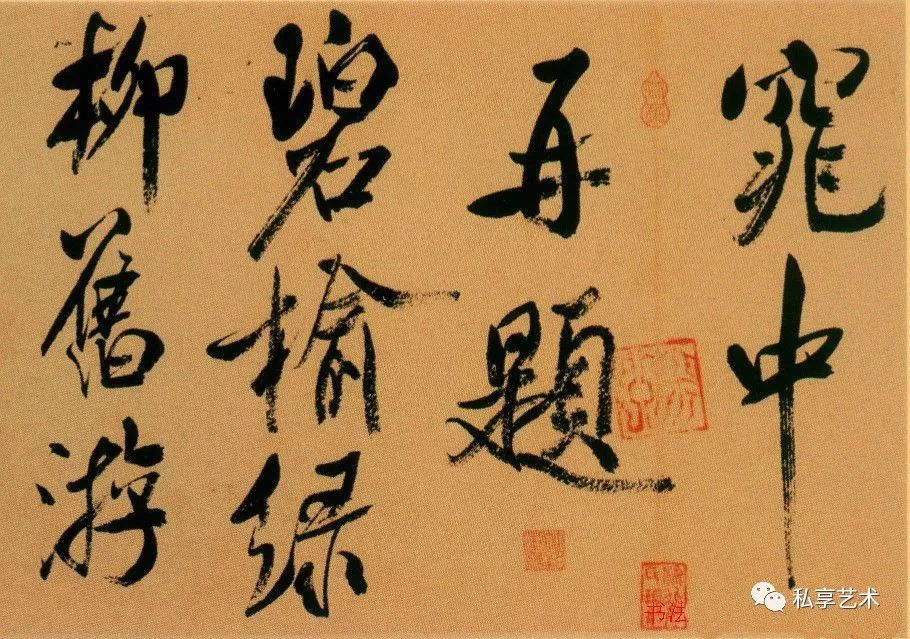 窕中
再題
碧榆綠
柳舊游
书法
私享艺术